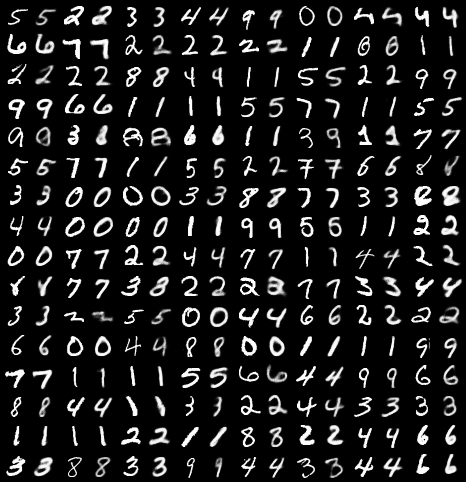 5 5 2 2 3 3 4 4 9 9 0 0 4 4 4 4
6 6 7 7 2 2 2 2 2 2 1 1 1 1
2 2 2 2 8 8 4 4 1 1 5 5 2 2 9 9
9 9 6 6 1 1 1 1 5 5 7 7 1 1 5 5
9 9 3 8 8 8 6 6 1 1 3 9 1 1 7 7
5 5 7 7 1 1 5 5 2 2 7 7 6 6 8 8
3 3 0 0 0 0 3 3 8 8 7 7 3 3 8 8
4 4 0 0 0 0 1 1 9 9 5 5 1 1 2 2
0 0 7 7 2 2 4 4 7 7 1 1 4 4 2 2
8 8 7 7 3 8 2 2 2 3 7 7 3 3 4 4
3 3 2 2 5 5 0 0 4 4 6 6 2 2 2 2
6 6 0 0 4 4 8 8 0 0 1 1 1 1 9 9
7 7 1 1 1 1 5 5 6 6 4 4 9 9 6 6
8 8 4 4 1 1 3 3 2 2 4 4 3 3 3 3
1 1 1 1 2 2 1 1 8 8 2 2 4 4 6 6
3 3 8 8 3 3 9 9 4 4 3 3 4 4 6 6